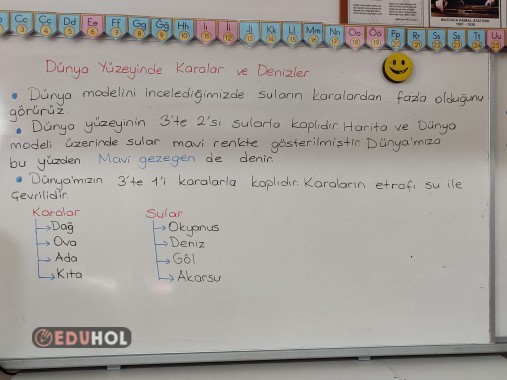 Cc Çç Dd Ee Ff Gg Ğğ Hh Iı İi Jj Kk Ll Mm Nn Oo Öö Pp Rr Ss Şş Tt Uu
MUSTAFA KEMAL ATATÜRK
1881 - 1938
Dünya Yüzeyinde Karalar ve Denizler
• Dünya modelini incelediğimizde suların karalardan fazla olduğunu
görürüz
• Dünya yüzeyinin 3'te 2'si sularla kaplıdır. Harita ve Dünya
modeli üzerinde sular mavi renkte gösterilmiştir. Dünya'mıza
bu yüzden Mavi gezegen de denir.
• Dünya'mızın 3'te 1'i karalarla kaplıdır. Karaların etrafı su ile
çevrilidir.
Karalar Sular
Dağ Okyanus
Ova Deniz
Ada Göl
Kıta Akarsu
EDUHOL